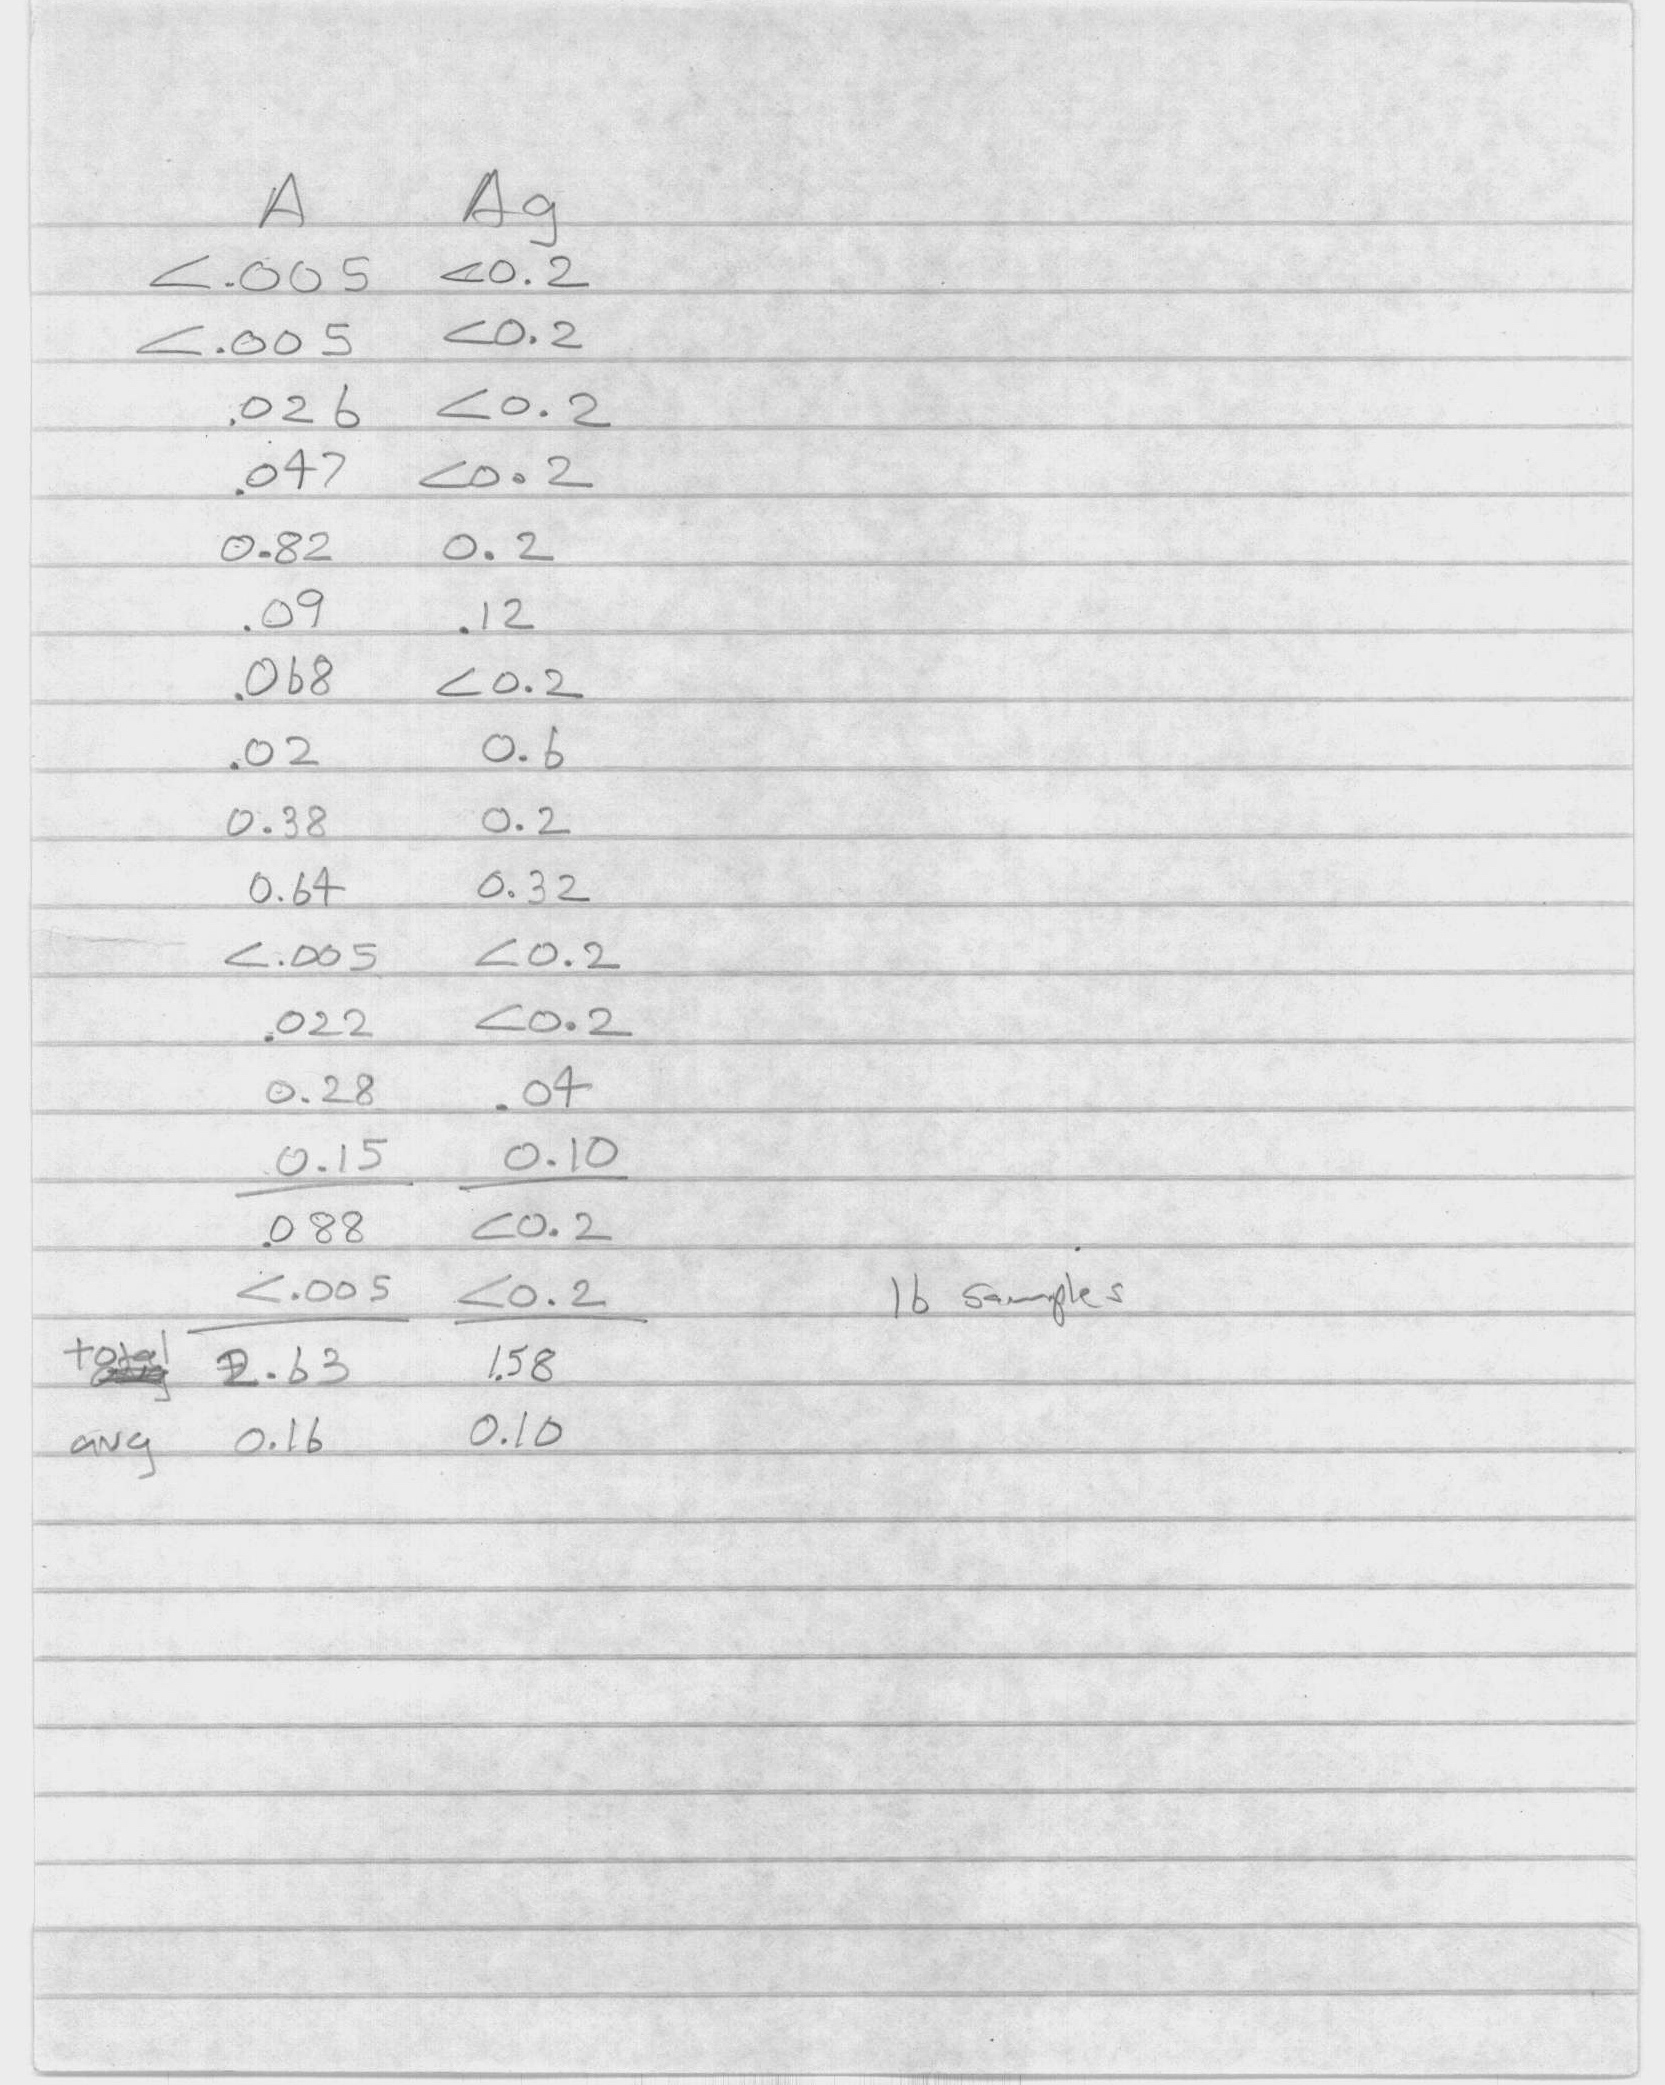 A Ag
<.005 <0.2
<.005 <0.2
.026 <0.2
.047 <0.2
0.82 0.2
.09 .12
.068 <0.2
.02 0.6
0.38 0.2
0.64 0.32
<.005 <0.2
.022 <0.2
0.28 .04
0.15 0.10
.088 <0.2
<.005 <0.2 16 samples
total 2.63 1.58
avg 0.16 0.10